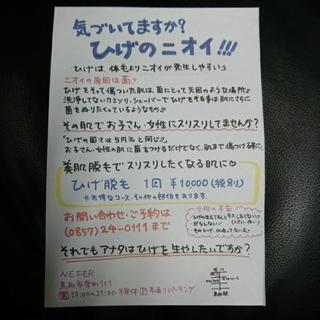 気づいてますか?
ひげのニオイ!!!
ひげは、体毛よりニオイが発生しやすい
ニオイの原因は菌
ひげをそって傷ついた肌は、菌にとって天国のような場所
洗浄してないカミソリ、シェーバーでひげをそる事は肌にさらに
菌をぬりたくっているようなもの
その肌でお子さん・女性にスリスリしてませんか?
「ひげの固さは5円玉と同じ
お子さん・女性の肌に菌をつけるだけでなく、肌まで傷つけ
美肌脱毛でスリスリしたくなる肌に
ひげ脱毛 1回 ¥10000(税別)
※お得なコース・その他の部位もあります。
お問い合わせ・ご予約は
(0857)24-0111まで
女性の本音
だらしない
それでもアナタはひげを生やしたいですか?
NEFER
鳥取市